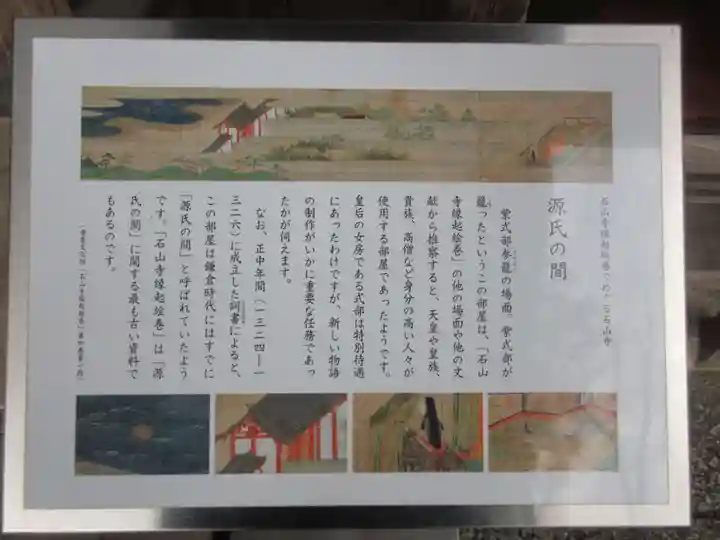 石山寺縁起絵巻でめぐる石山寺
源氏の間
紫式部参籠の場面。紫式部が
籠ったというこの部屋は、「石山
寺縁起絵巻」の他の場面や他の文
献から推察すると、天皇や皇族、
貴族、高僧など身分の高い人々が
使用する部屋であったようです。
皇后の女房である式部は特別待遇
にあったわけですが、新しい物語
の制作がいかに重要な任務であっ
たかが伺えます。
なお、正中年間(一三二四―一
三二六)に成立した詞書によると、
この部屋は鎌倉時代にはすでに
「源氏の間」と呼ばれていたよう
です。「石山寺縁起絵巻」は「源
氏の間」に関する最も古い資料で
もあるのです。
(重要文化財「石山寺縁起絵巻」第四巻第一段)